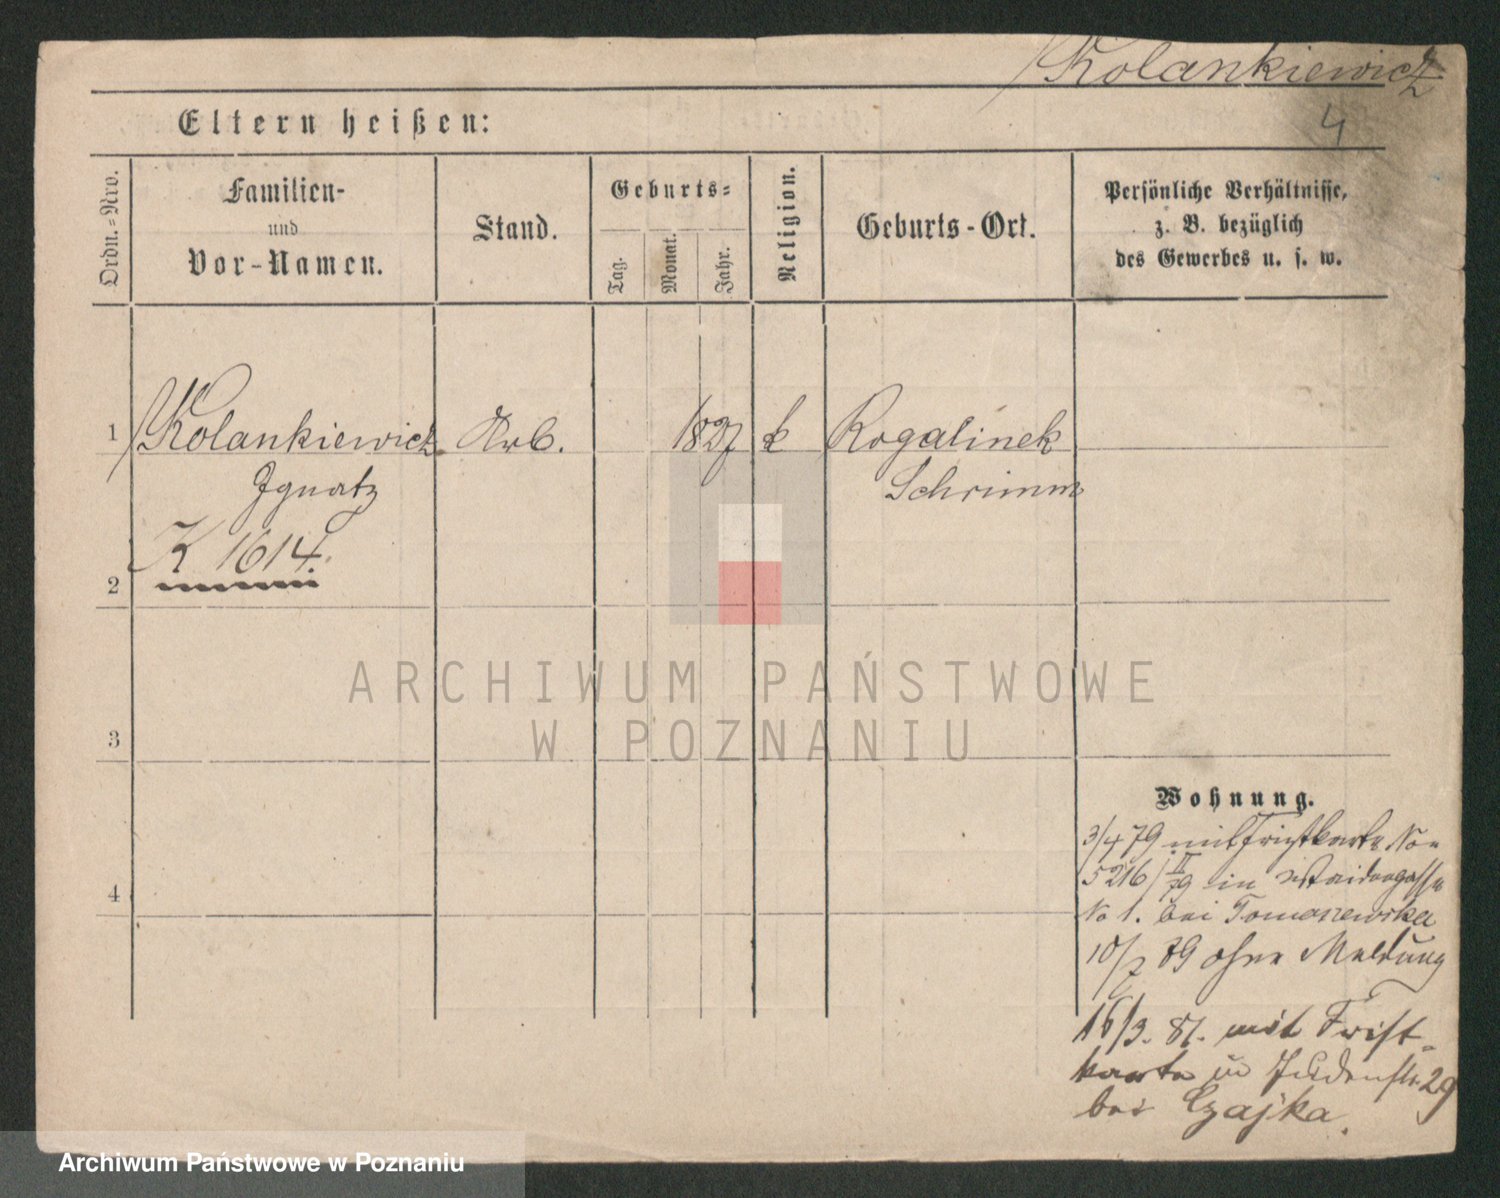 Kolankiewicz
4
Eltern heißen:
Ordn.=Nro.
Familien-
und
Vor-Namen.
Stand.
Geburts=
Tag.
Monat.
Jahr.
Religion.
Geburts-Ort.
Persönliche Verhältnisse,
z. B. bezüglich
des Gewerbes u. s. w.
1 Kolankiewicz Arb. 1827 k Rogalinek
Ignatz Schrimm
K 1614.
2
3
4
ARCHIWUM PAŃSTWOWE
W POZNANIU
Wohnung.
3/4 79 mit Fristkarte No
5216/ II 79 in
No 1. bei Tomaszewska
10/7 79 ohne Meldung
16/3. 81. mit Frist-
karte in Judenstr 29
bei Czajka.
Archiwum Państwowe w Poznaniu